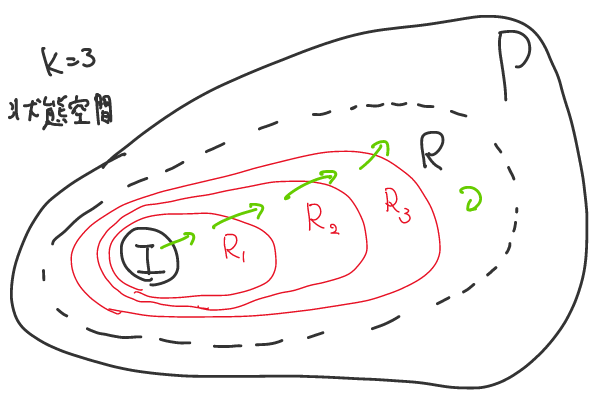 K=3
状態空間
P
R
I
R₁
R₂
R₃